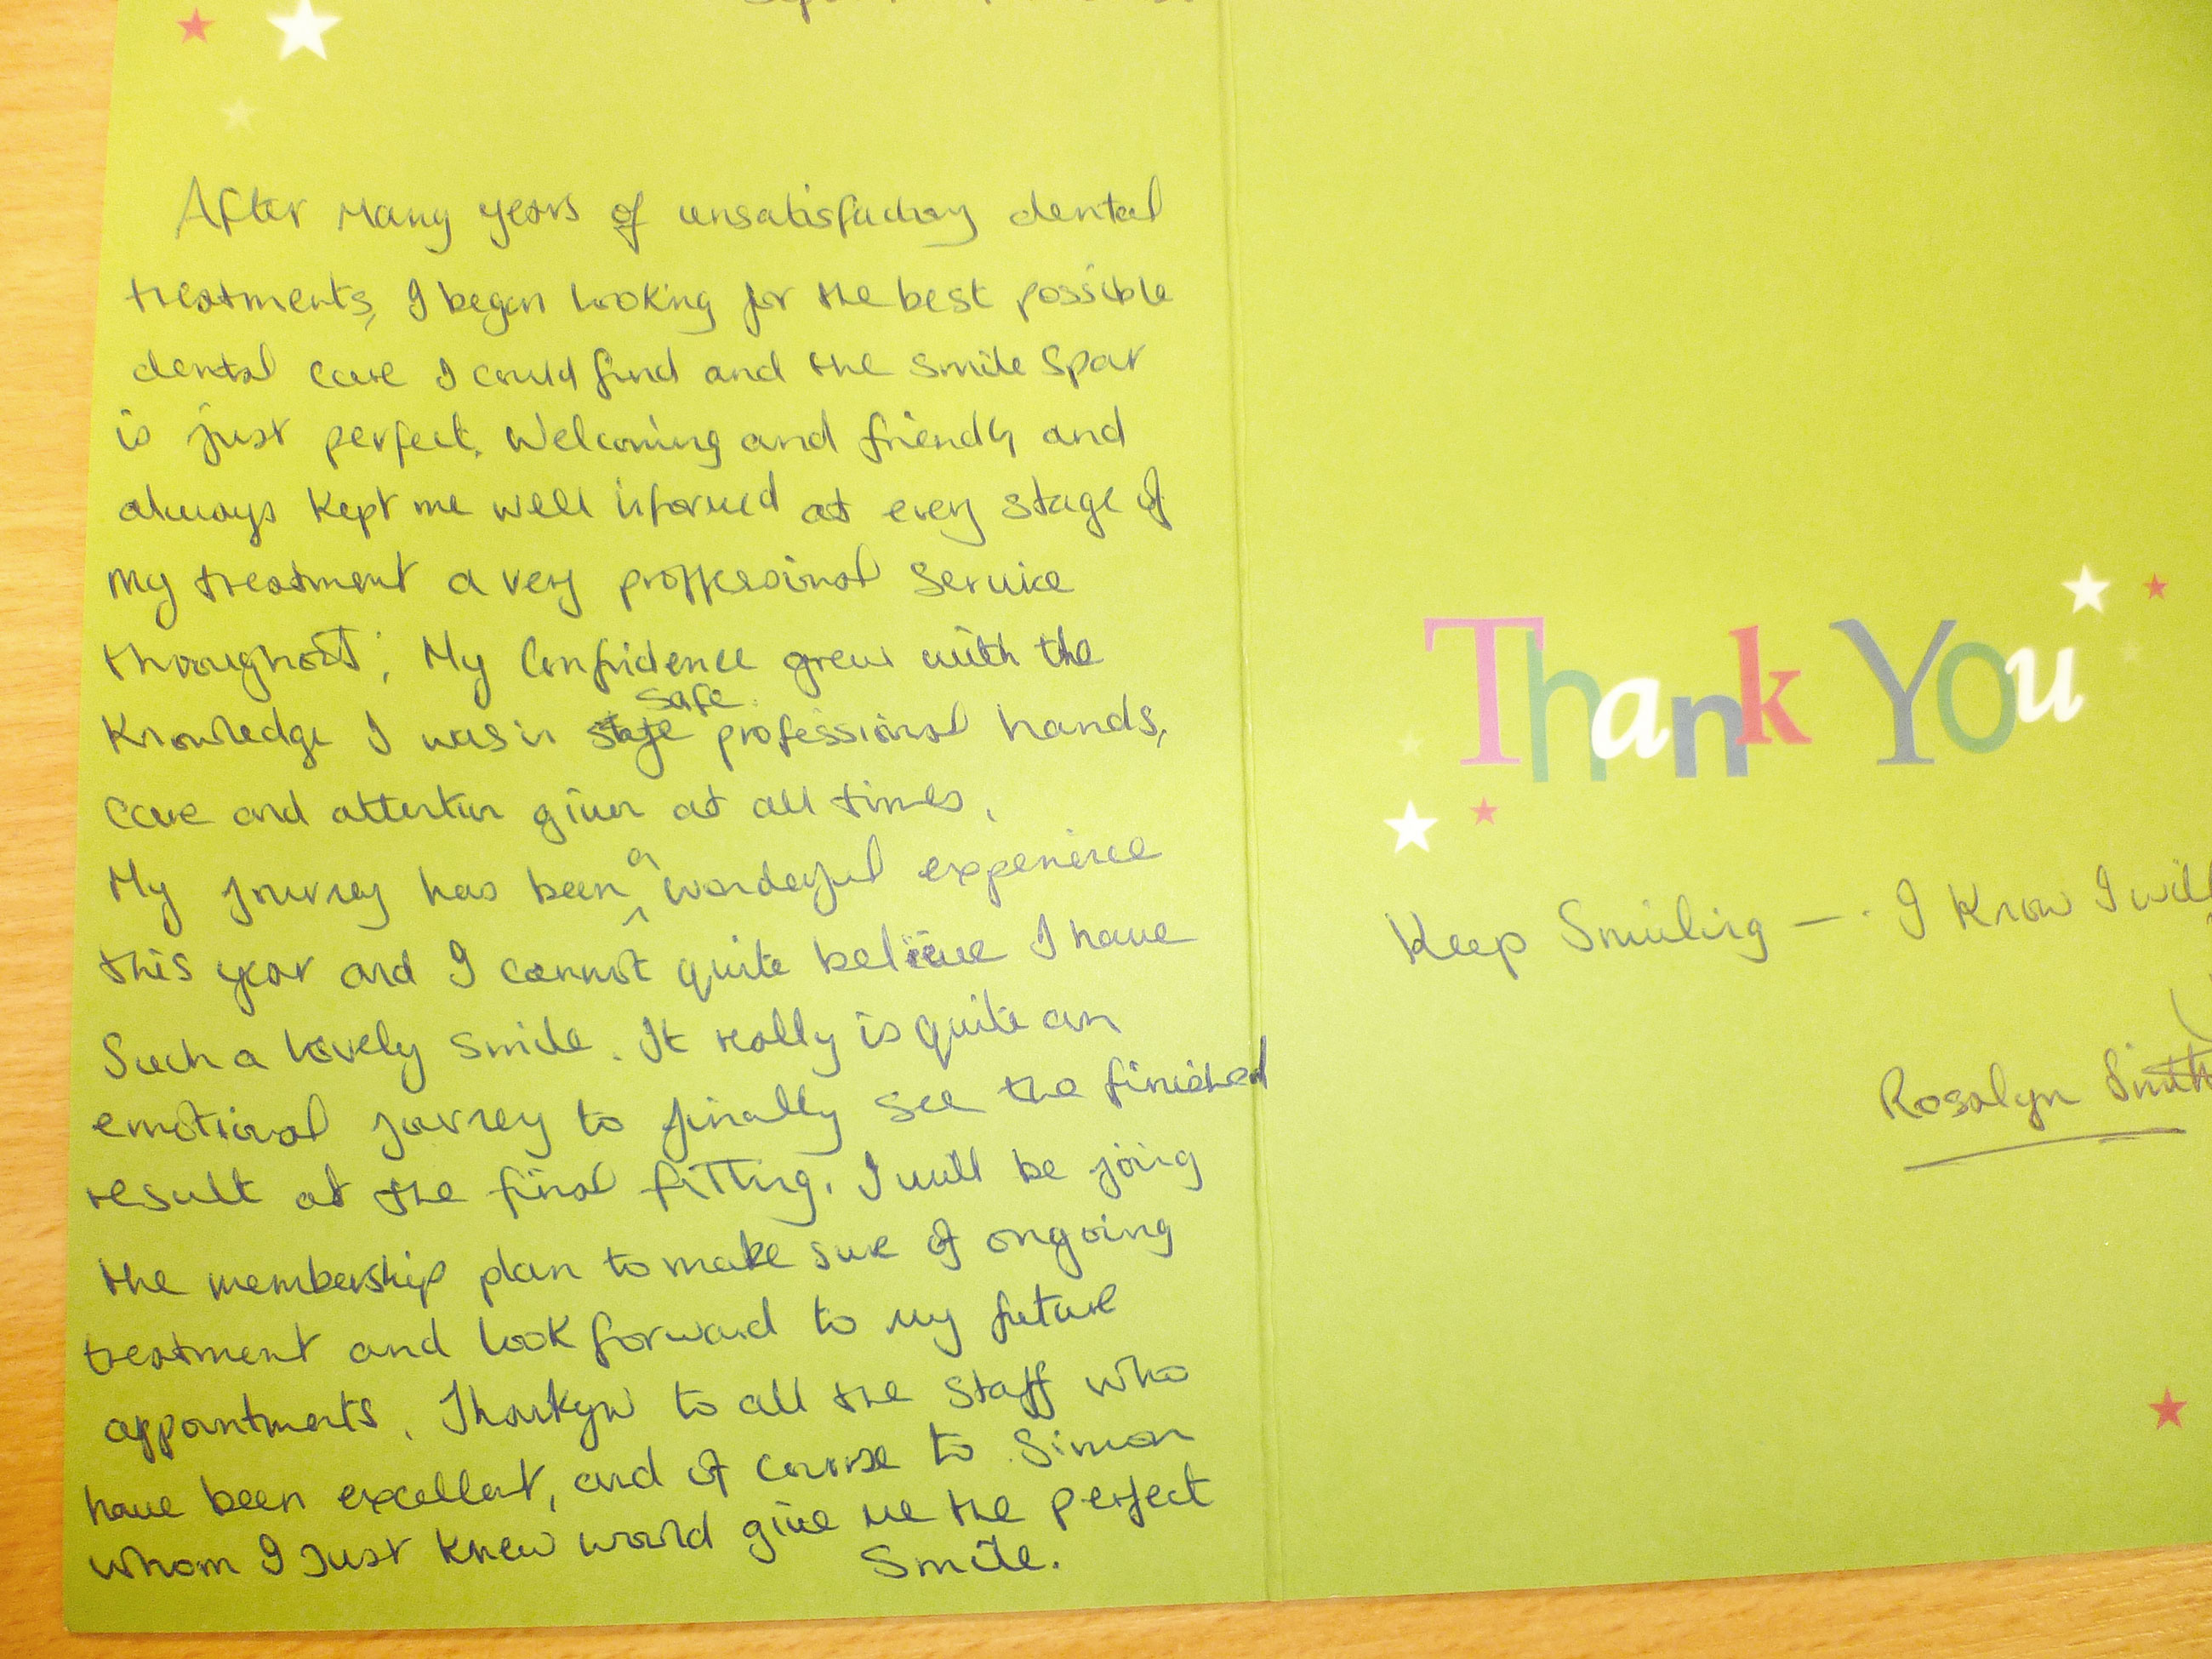 After Many years of unsatisfactory dental
treatments, I began looking for the best possible
dental care I could find and the smile Spar
is just perfect. Welcoming and friendly and
always kept me well informed at every stage of
my treatment a very proffessional service
throughout; My Confidence grew with the
safe
Knowledge I was in professional hands,
care and attention given at all times.
My journey has been a wonderful experience
this year and I cannot quite believe I have
Such a lovely smile. It really is quite an
emotional journey to finally see the finished
result at the final fitting. I will be joing
the membership plan to make sure of ongoing
treatment and look forward to my future
appointments. Thankyou to all the staff who
have been excellent, and of course to Simon
whom I Just knew would give me the perfect
Smile.
Thank You
Keep Smiling — I Know I will
Rosalyn Smith